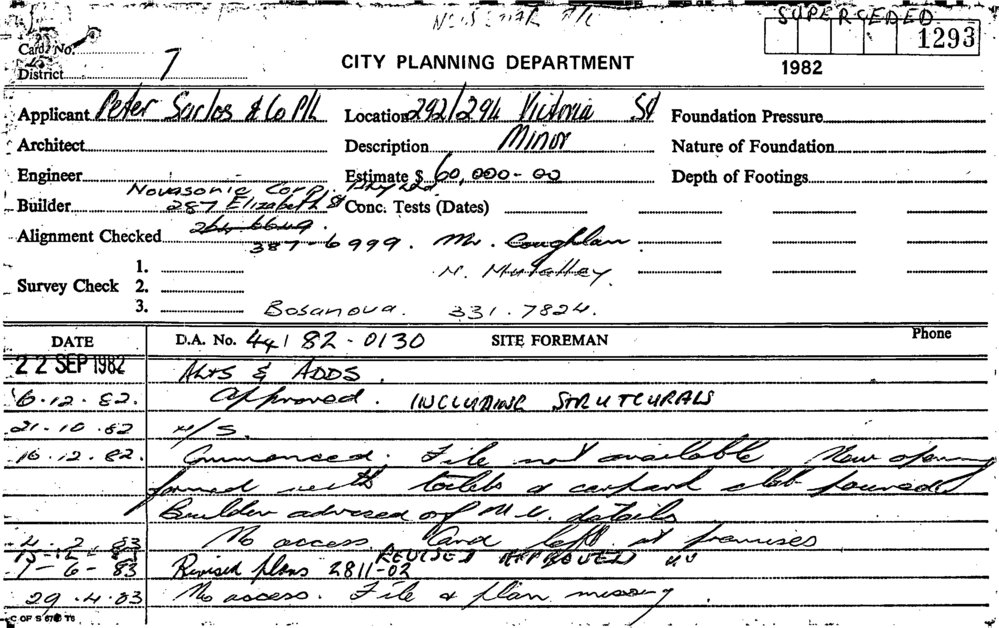 SUPERCEDED
Card No.
1293
District 7
CITY PLANNING DEPARTMENT
1982
Applicant Peter Sarlos & Co P/L Location 292/294 Victoria St Foundation Pressure
Architect Description Minor Nature of Foundation
Engineer Estimate $ 60,000-00 Depth of Footings
Novasonic Corp. Pty Ltd
Builder 287 Elizabeth St Conc. Tests (Dates)
264 6649.
Alignment Checked 387-6999. Mr. Coughlan
1.
Survey Check 2.
3. Bosanova. 331.7824.
DATE D.A. No. 44 82-0130 SITE FOREMAN Phone
22 SEP 1982 Alts & ADDS.
6.12.82. Approved. INCLUDING STRUTCURALS
21-10.82 H/S.
16.12.82. Commenced. File not available New opening
formed with toilets & carpark slab poured
Builder advised of details
4.2.83 No access. Card left at premises
REVISED APPROVED
7-6-83 Revised plans 2811-02
29.4.83 No access. File & plan missing
C OF S